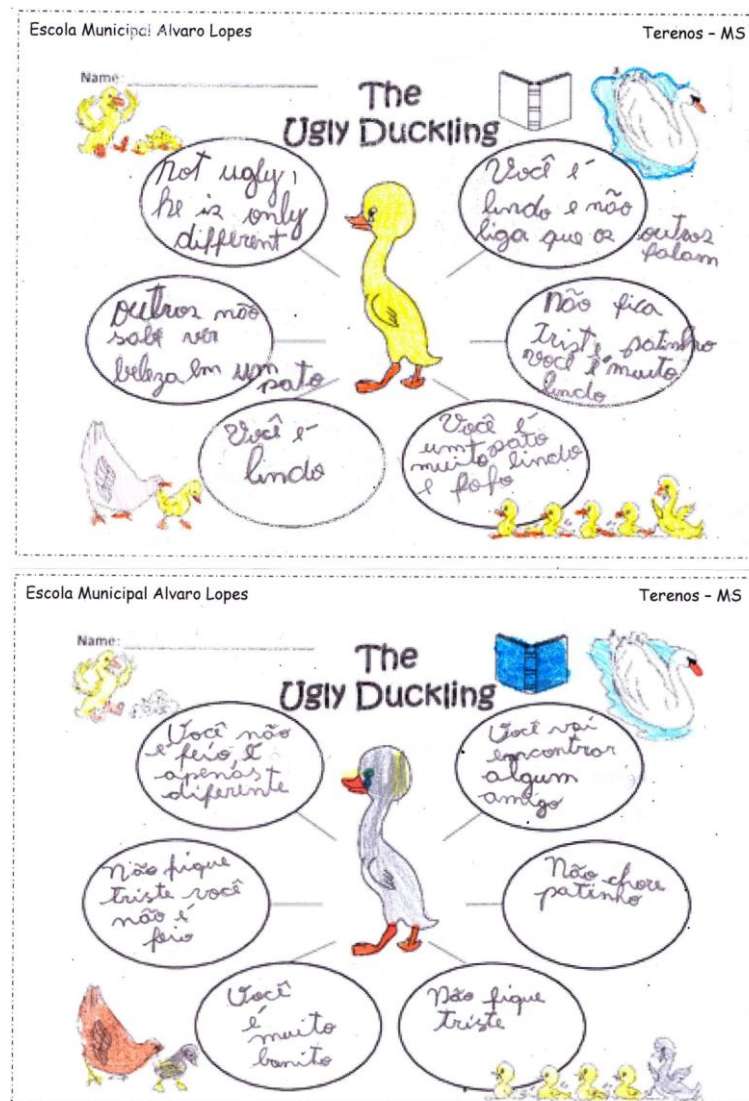 Escola Municipal Alvaro Lopes
Terenos – MS
Name:
The
Ugly Duckling
not ugly,
he is only
different
Você é
lindo e não
liga que os outros
falam
outros não
sabe ver
beleza em um
pato
Não fica
triste patinho
você é muito
lindo
Você é
lindo
Você é
um pato
muito lindo
e fofo
Escola Municipal Alvaro Lopes
Terenos – MS
Name:
The
Ugly Duckling
Você não
é feio, é
apenas
diferente
Você vai
encontrar
algum
amigo
Não fique
triste você
não é
feio
Não chore
patinho
Você
é
muito
bonito
Não fique
triste